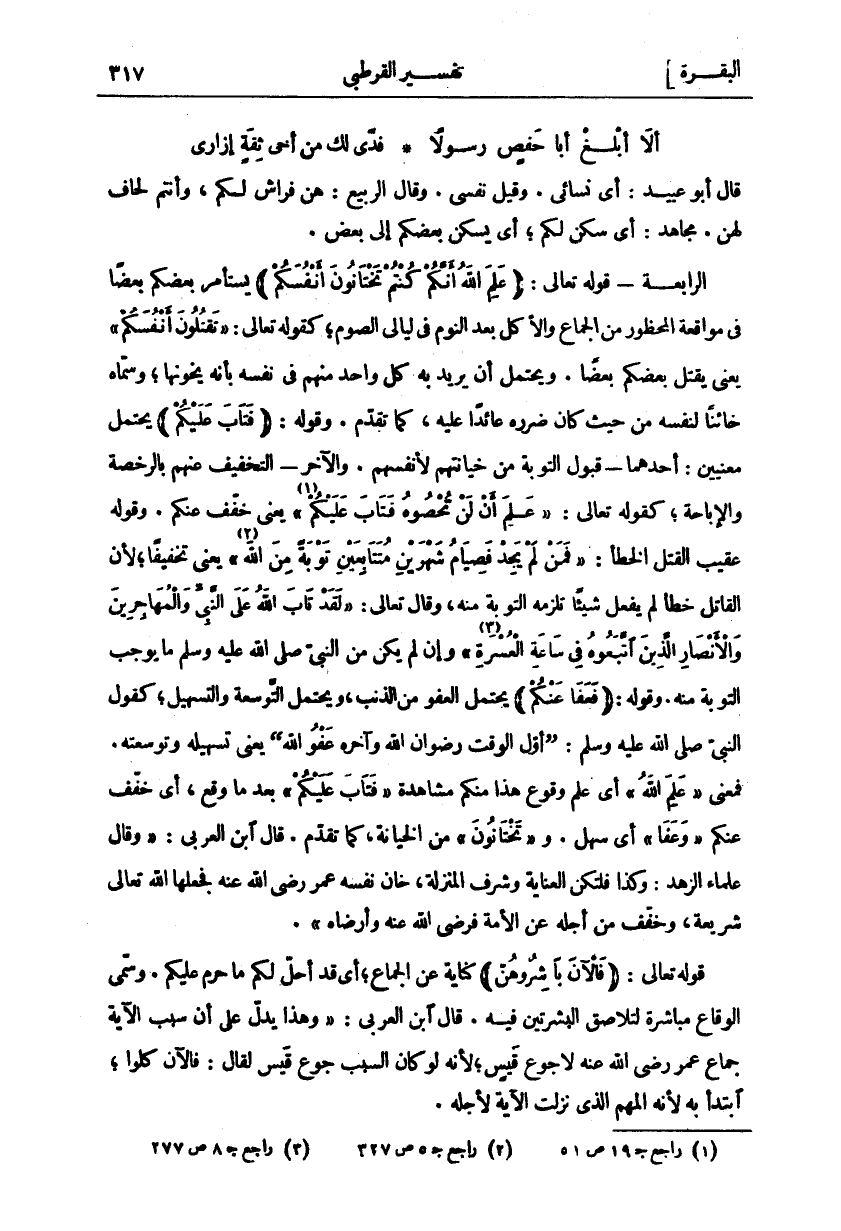 البقـــرة ]
تفســـير القرطبى
٣١٧
ألَا أَبْلـــغْ أبا حَفصٍ رســولًا * فدًى لك من أخى ثِقَةٍ إزارى
قال أبو عبيــد : أى نسائى . وقيل نفسى . وقال الربيع : هن فراش لـكم ، وأنتم لحاف
لهن . مجاهد : أى سكن لكم ؛ أى يسكن بعضكم إلى بعض .
الرابعـــة — قوله تعالى : ﴿ عَلِمَ اللهُ أَنَّكُمْ كُنْتُمْ تَخْتَانُونَ أَنْفُسَكُمْ ﴾ يستأمر بعضكم بعضًا
فى مواقعة المحظور من الجماع والأكل بعد النوم فى ليالى الصوم؛ كقوله تعالى: « تَقْتُلُونَ أَنْفُسَكُمْ »
يعنى يقتل بعضكم بعضًا . ويحتمل أن يريد به كل واحد منهم فى نفسه بأنه يخونها ؛ وسمّاه
خائنًا لنفسه من حيث كان ضرره عائدًا عليه ، كما تقدّم . وقوله : ﴿ فَتَابَ عَلَيْكُمْ ﴾ يحتمل
معنيين : أحدهما — قبول التوبة من خيانتهم لأنفسهم . والآخر — التخفيف عنهم بالرخصة
والإباحة ؛ كقوله تعالى : « عَــلِمَ أَنْ لَنْ تُحْصُوهُ فَتَابَ عَلَيْكُمْ(١) » يعنى خفّف عنكم . وقوله
عقيب القتل الخطأ : « فَمَنْ لَمْ يَجِدْ فَصِيَامُ شَهْرَيْنِ مُتَتَابِعَيْنِ تَوْبَةً مِنَ اللهِ(٢) » يعنى تخفيفًا؛ لأن
القاتل خطأ لم يفعل شيئًا تلزمه التوبة منه، وقال تعالى: « لَقَدْ تَابَ اللهُ عَلَى النَّبِىِّ وَالْمُهَاجِرِينَ
وَالْأَنْصَارِ الَّذِينَ ٱتَّبَعُوهُ فِى سَاعَةِ الْعُسْرَةِ(٣) » وإن لم يكن من النبىّ صلى الله عليه وسلم ما يوجب
التوبة منه. وقوله: ﴿ فَعَفَا عَنْكُمْ ﴾ يحتمل العفو من الذنب، ويحتمل التَّوسعة والتسهيل؛ كقول
النبىّ صلى الله عليه وسلم : ”أوّل الوقت رضوان الله وآخره عَفْوُ الله“ يعنى تسهيله وتوسعته.
فمعنى « عَلِمَ اللهُ » أى علم وقوع هذا منكم مشاهدة « فَتَابَ عَلَيْكُمْ » بعد ما وقع ، أى خفّف
عنكم « وَعَفَا » أى سهل . و « تَخْتَانُونَ » من الخيانة، كما تقدّم . قال ٱبن العربى : « وقال
علماء الزهد : وكذا فلتكن العناية وشرف المنزلة، خان نفسه عمر رضى الله عنه فجعلها الله تعالى
شريعة، وخفّف من أجله عن الأمة فرضى الله عنه وأرضاه » .
قوله تعالى : ﴿ فَالْآنَ بَاشِرُوهُنّ ﴾ كناية عن الجماع؛ أى قد أحلّ لكم ما حرم عليكم . وسمّى
الوقاع مباشرة لتلاصق البشرتين فيـــه . قال ٱبن العربى : « وهذا يدلّ على أن سبب الآية
جماع عمر رضى الله عنه لا جوع قَيس؛ لأنه لو كان السبب جوع قَيس لقال : فالآن كلوا ؛
ٱبتدأ به لأنه المهم الذى نزلت الآية لأجله .
(١) راجع جـ ١٩ ص ٥١ (٢) راجع جـ ٥ ص ٣٢٧ (٣) راجع جـ ٨ ص ٢٧٧